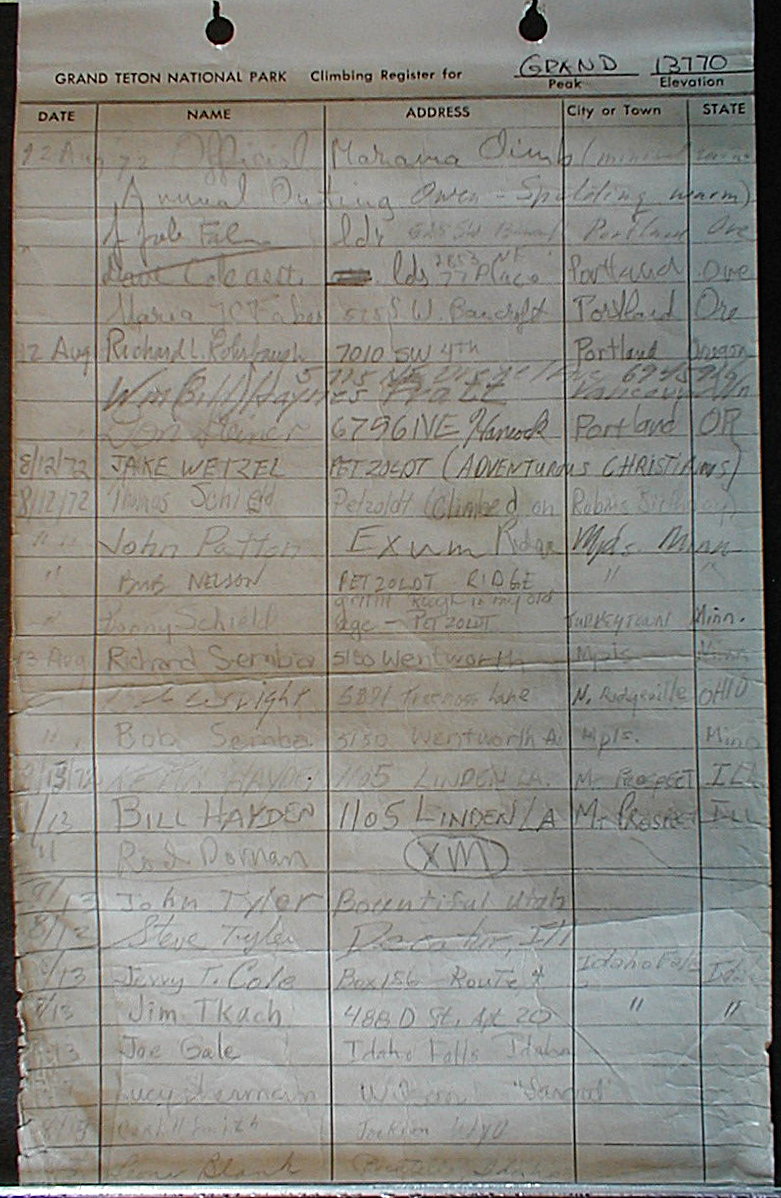 GRAND 13770
GRAND TETON NATIONAL PARK Climbing Register for Peak Elevation
DATE NAME ADDRESS City or Town STATE
12 Aug 72 Official Mazama Climb
Annual Outing Owen-Spalding warm)
lds Portland Ore
Dave lds 77 Place Portland Ore
Maria 525 S.W. Bancroft Portland Ore
12 Aug Richard L. Rohrbaugh 7010 SW 4th Portland Oregon
Wm (Bill) Haynes Pratt Vancouver Wn
Don 6796 NE Hancock Portland OR
8/12/72 JAKE WETZEL PETZOLDT (ADVENTUROUS CHRISTIANS)
8/12/72 Thomas Schield Petzoldt (Climbed on Robins Birthday)
" " John Patton Exum Ridge Mpls. Minn
" BUB NELSON PETZOLDT RIDGE " "
" Schield Rough in my old age - PETZOLDT TURKEYTOWN Minn.
13 Aug Richard Serabia 5150 Wentworth Mpls Minn
Wright 5891 Lane N. Ridgeville OHIO
" Bob 5150 Wentworth A. Mpls. Minn
8/13/72 HAYDEN 1105 LINDEN LA. Mt PROSPECT ILL
/13 BILL HAYDEN 1105 LINDEN LA Mt PROSPECT ILL
" Rod Dornan XM
8/13 John Tyler Bountiful Utah
8/12 Steve Tyler Decatur, Ill
8/13 Jerry T. Cole Box 156 Route 4 Idaho Falls Idaho
8/13 Jim Tkach 488 D St. Apt 20 " "
13 Joe Gale Idaho Falls Idaho
Lucy
8/13 Smith Jackson WYO
Blank Idaho